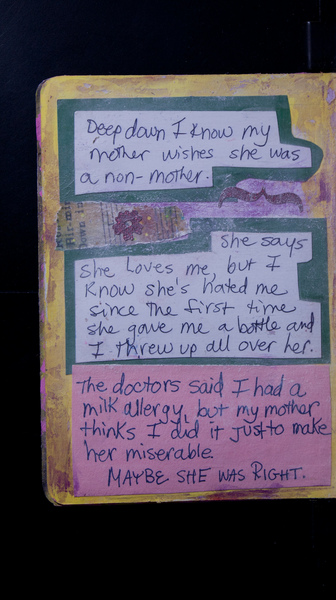 Deep down I know my
mother wishes she was
a non-mother.
She says
she loves me, but I
know she's hated me
since the first time
she gave me a bottle and
I threw up all over her.
The doctors said I had a
milk allergy, but my mother
thinks I did it just to make
her miserable.
MAYBE SHE WAS RIGHT.